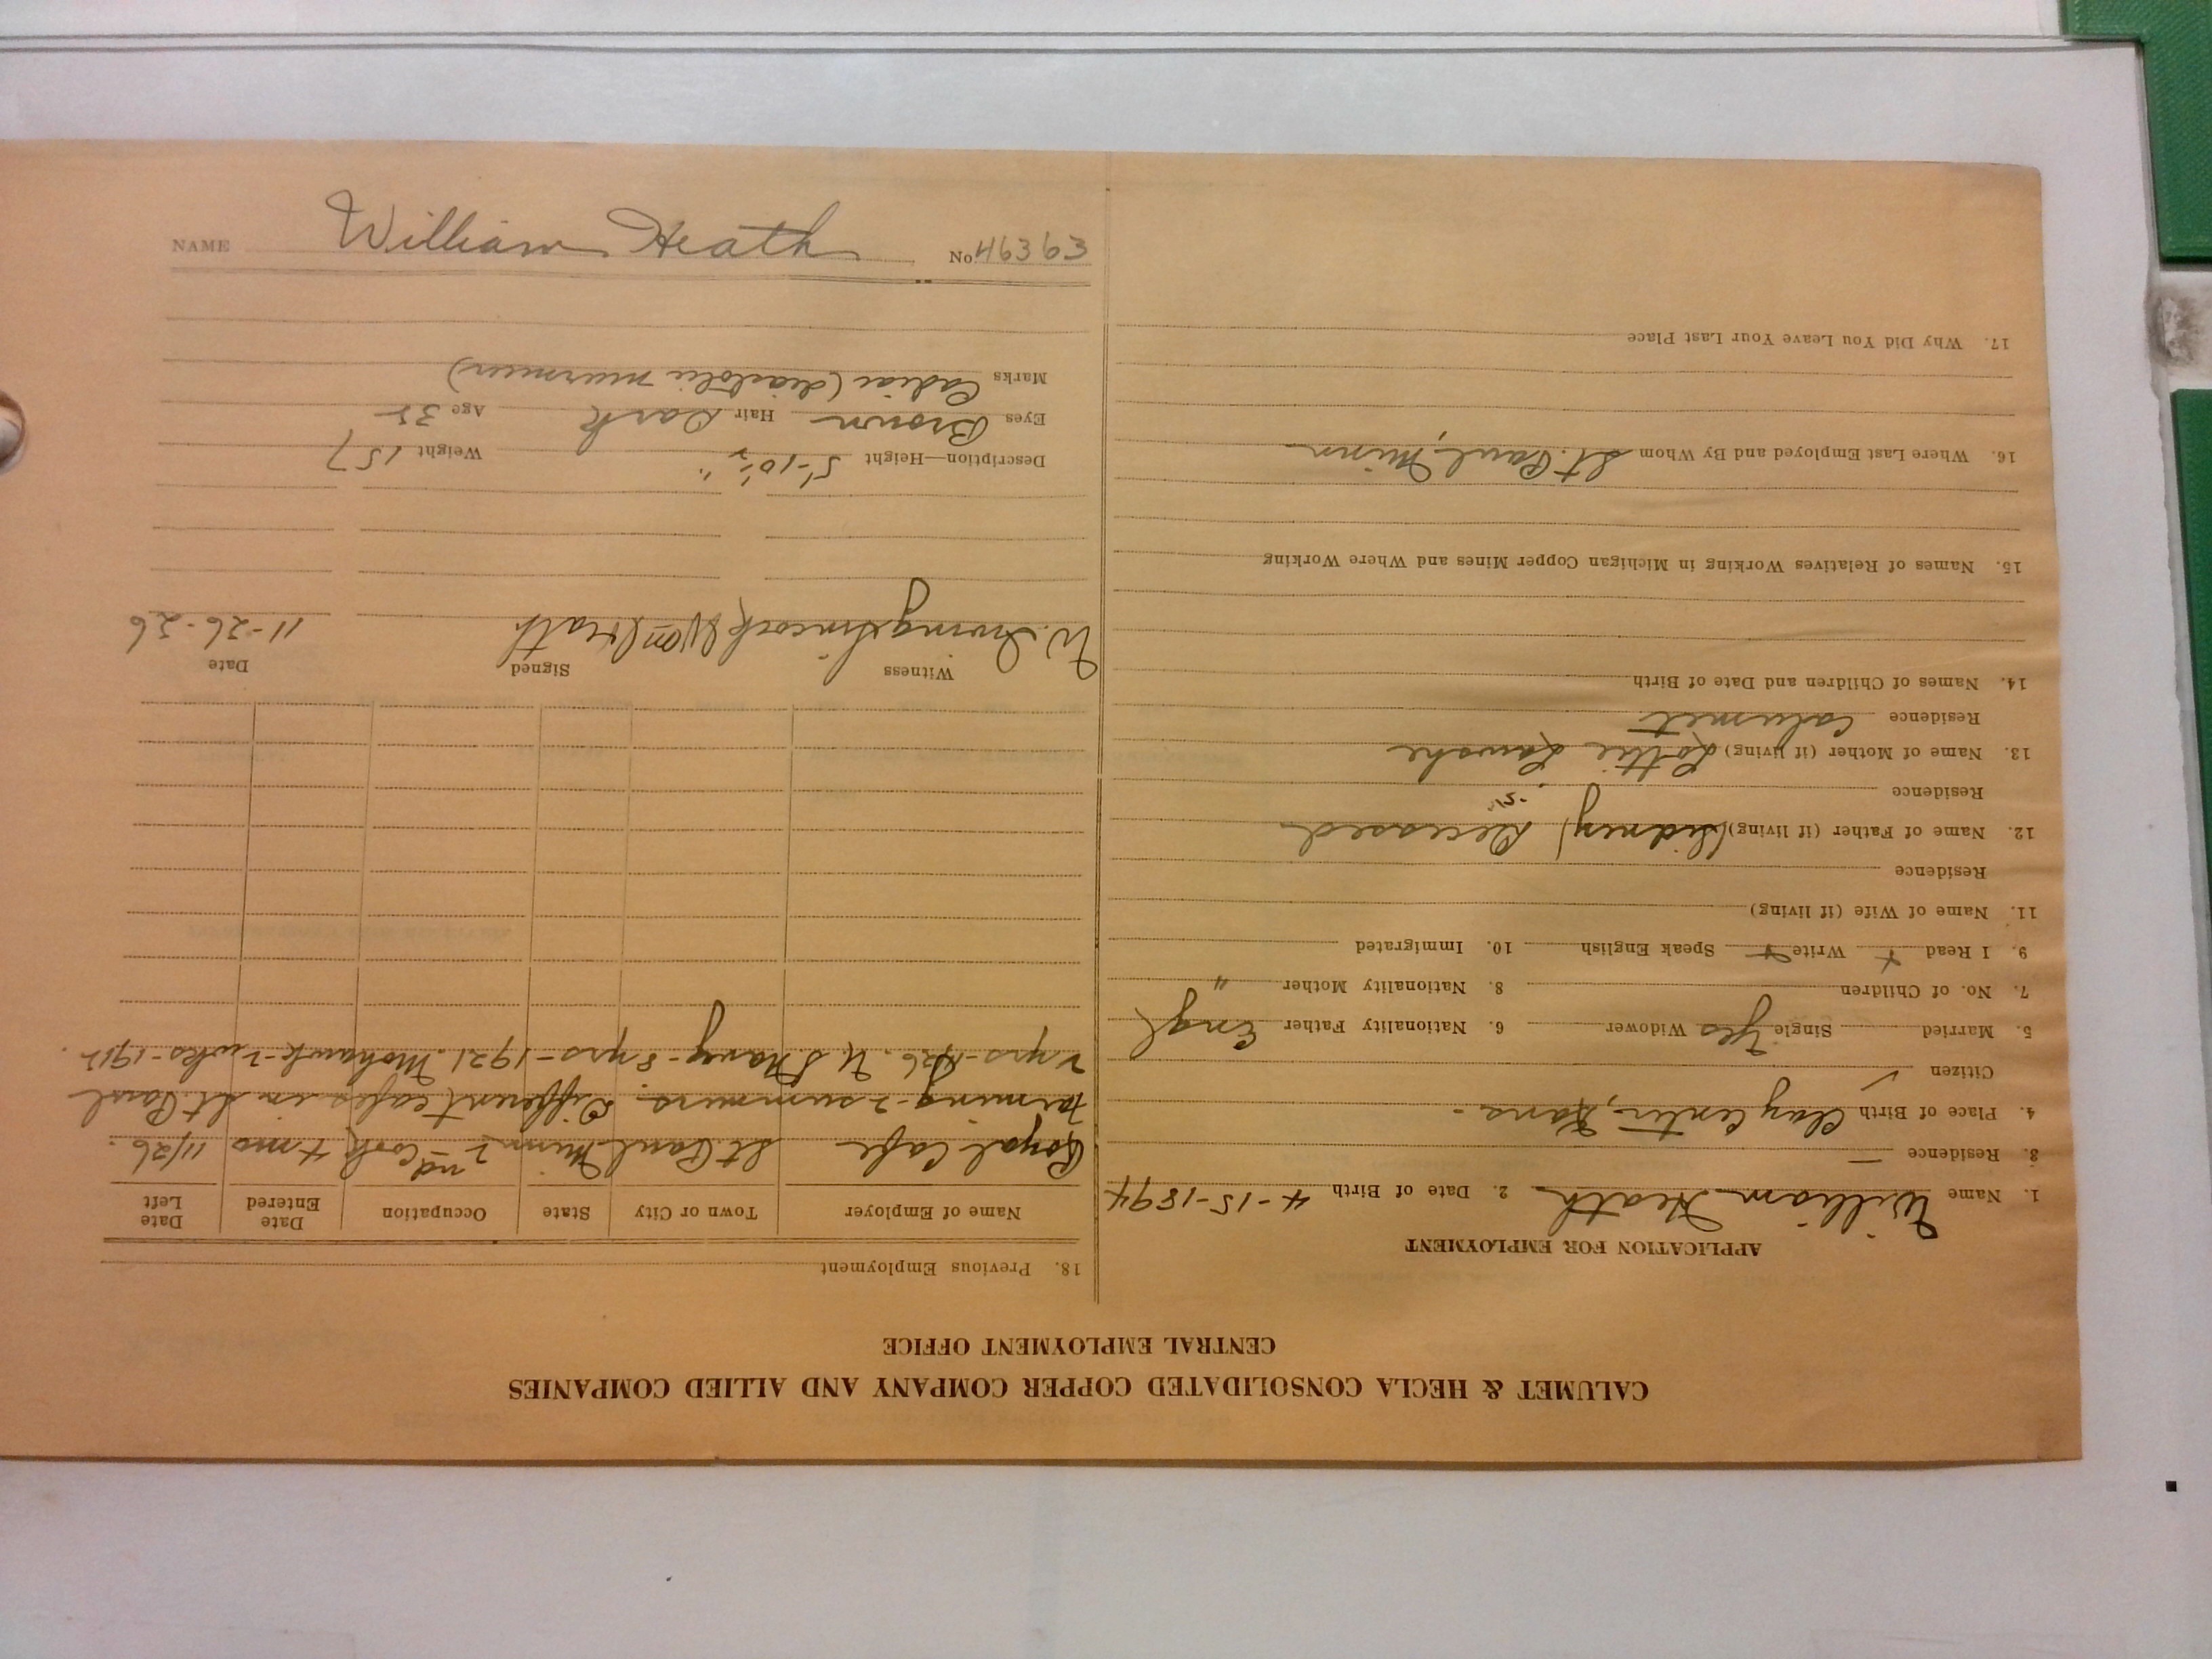 NAME William Heath No. 46363
CALUMET & HECLA CONSOLIDATED COPPER COMPANY AND ALLIED COMPANIES
CENTRAL EMPLOYMENT OFFICE
APPLICATION FOR EMPLOYMENT
1. Name William Heath 2. Date of Birth 4-15-1894
3. Residence —
4. Place of Birth Clay Center, Kans.
Citizen ✓
5. Married Single Yes Widower 6. Nationality Father Engl
7. No. of Children 8. Nationality Mother "
9. I Read + Write + Speak English 10. Immigrated
11. Name of Wife (if living)
Residence
12. Name of Father (if living) (Sidney) Deceased
Residence
13. Name of Mother (if living) Lottie
Residence Calumet
14. Names of Children and Date of Birth
15. Names of Relatives Working in Michigan Copper Mines and Where Working
16. Where Last Employed and By Whom St. Paul, Minn
17. Why Did You Leave Your Last Place
18. Previous Employment
Name of Employer Town or City State Occupation Date Entered Date Left
Royal Cafe St Paul Minn 2nd Cook 4 mos 11/26.
Farming - 2 summers. Different cafes in St. Paul
2 yrs - 1926. U.S. Navy - 8 yrs - 1921. Mohawk - 2 wks - 1912.
Witness Signed Date
W. Irving Wm Heath 11-26-26
Description—Height 5'-10½" Weight 157
Eyes Brown Hair Dark Age 32
Marks (diastolic murmur)